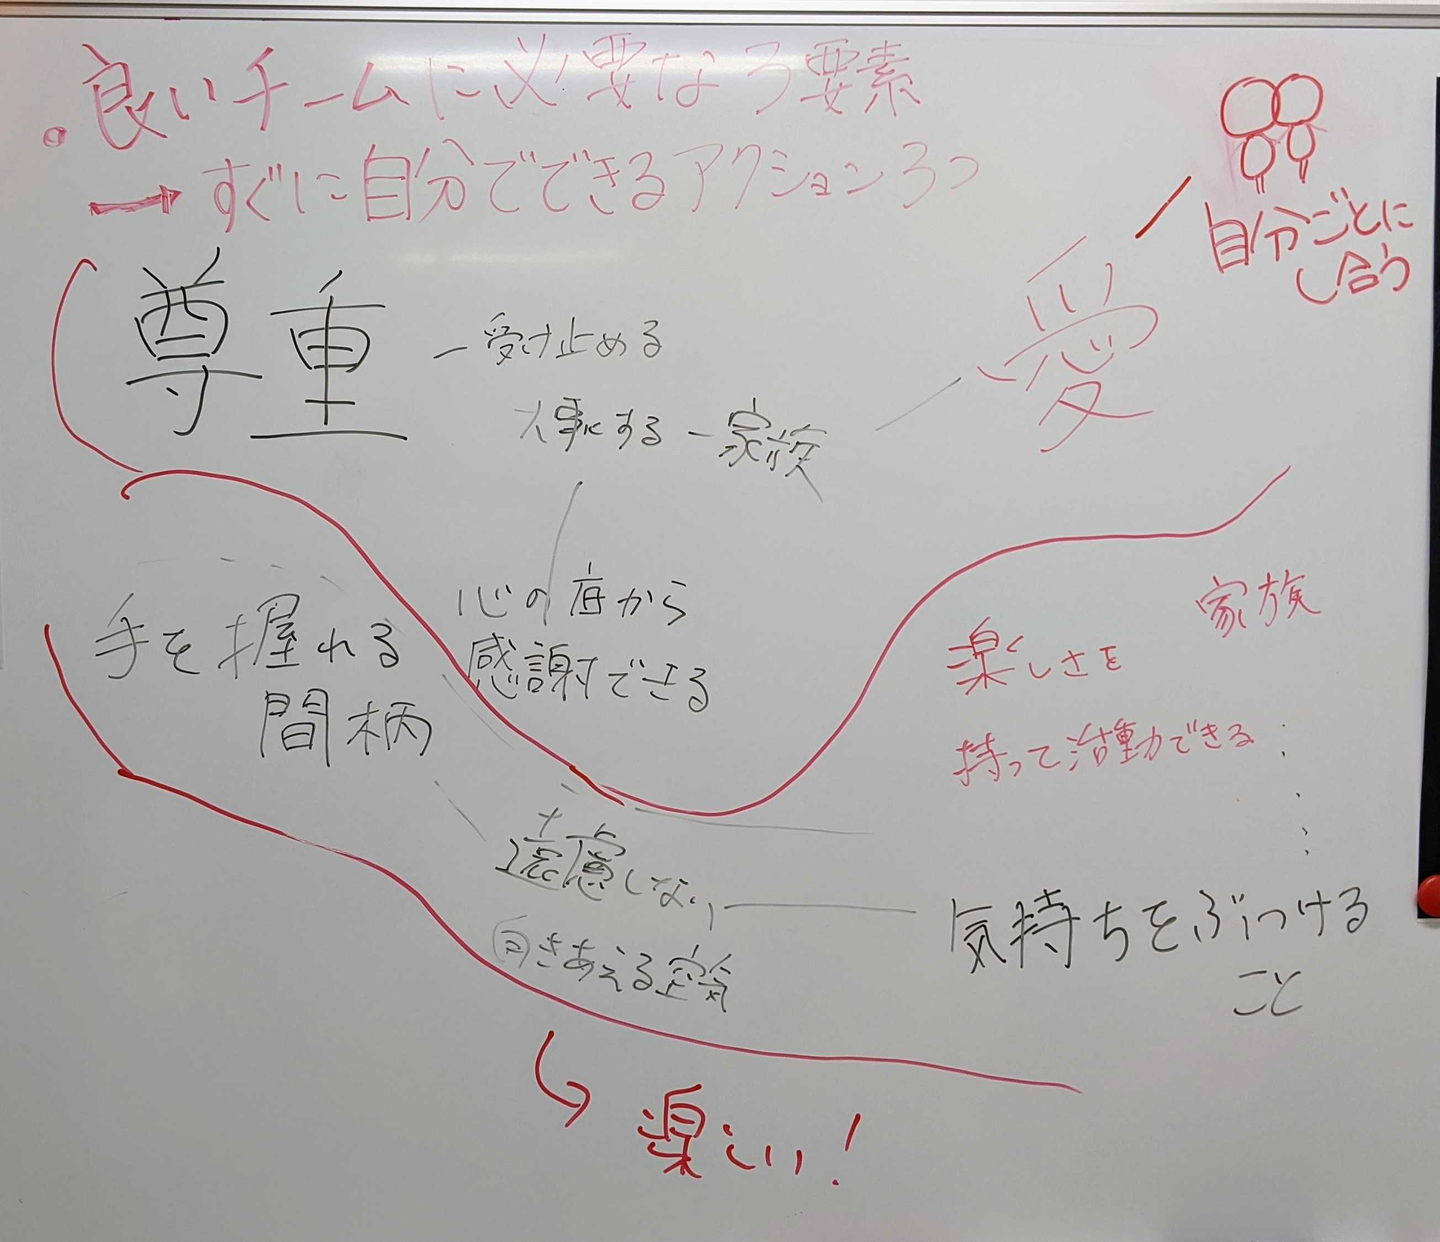 ・良いチームに必要な3要素
→すぐに自分でできるアクション3つ
自分ごとに
し合う
尊重 ー受け止める
大事にする ー家族
愛
心の底から
感謝できる
手を握れる
間柄
家族
楽しさを
持って活動できる
遠慮しない
向きあえる空気
気持ちをぶつける
こと
楽しい!